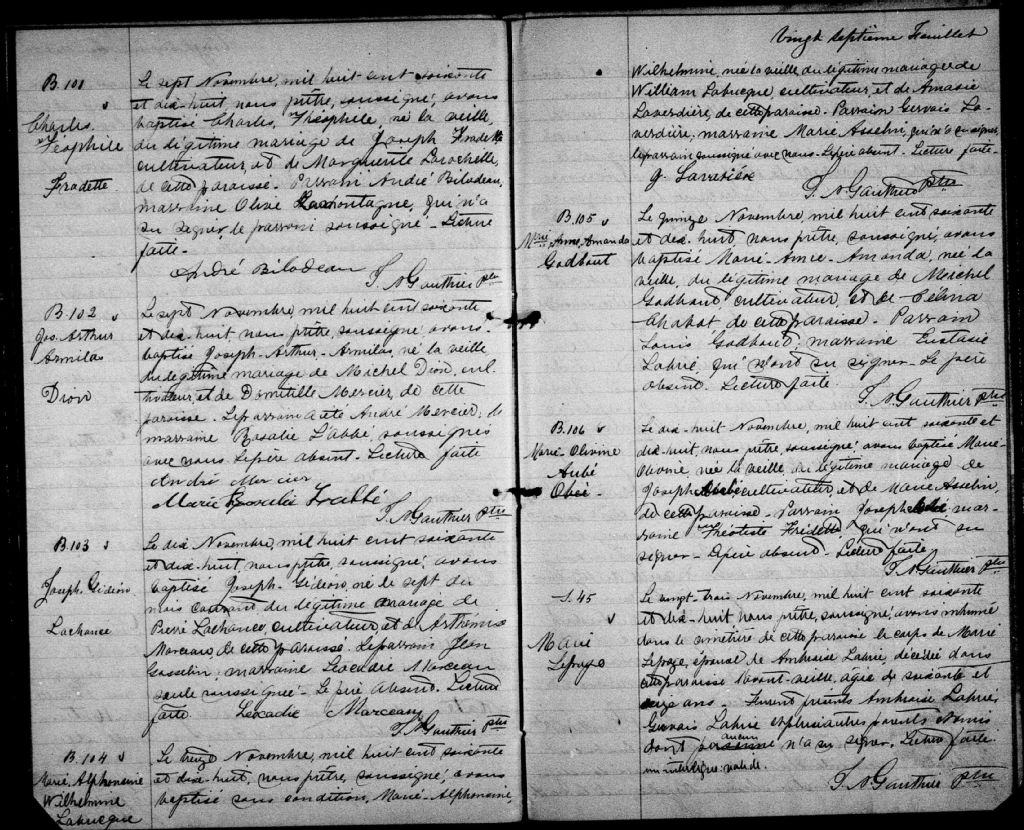 B. 101
Charles
Téophile
Fradette
Le sept Novembre, mil huit cent soixante
et dix-huit, nous prêtre, soussigné, avons
baptisé Charles, Théophile, né la veille,
du légitime mariage de Joseph Fradette
cultivateur, et de Marguerite Larochelle,
de cette paroisse. Parrain André Bilodeau,
marraine Olive Lamontagne, qui n'a
su signer, le parrain soussigné - Lecture
faite -
André Bilodeau
J. N Gauthier ptre
B. 102
Jos. Arthur
Armilas
Dion
Le sept Novembre, mil huit cent soixante
et dix-huit, nous prêtre, soussigné, avons
baptisé Joseph-Arthur-Armilas, né la veille
du légitime mariage de Michel Dion, cul-
tivateur, et de Domitille Mercier, de cette
paroisse. Le parrain a été André Mercier, la
marraine Rosalie L'abbé, soussignés
avec nous. Le père absent. Lecture faite
André Mercier
Marie Rosalie Labbé
J. N Gauthier ptre
B. 103
Joseph. Gidéon
Lachance
Le dix Novembre, mil huit cent soixante
et dix-huit, nous prêtre, soussigné, avons
baptisé Joseph-Gidéon, né le sept du
mois courant du légitime mariage de
Pierre Lachance, cultivateur, et d'Arthémise
Morceau de cette paroisse. Le parrain Jean
Gosselin, marraine Léocadie Morceau
seule soussignée - Le père absent. Lecture
faite. Léocadie Marceau
J. N Gauthier ptre
B. 104
Marie, Alphonsine
Wilhelmine
Labrecque
Le treize Novembre, mil huit cent soixante
et dix-huit, nous prêtre, soussigné, avons
baptisé sous condition, Marie-Alphonsine,
Vingt septième Feuillet
Wilhelmine, née la veille, du légitime mariage de
William Labrecque cultivateur, et de Amasie
Laverdière, de cette paroisse. Parrain Gervais La-
verdière, marraine Marie Asselin, qui n'a su signer,
le parrain soussigné avec nous. Le père absent. Lecture faite.
G. Laverdière
J. N Gauthier ptre
B. 105
Marie Anne, Amanda
Godbout
Le quinze Novembre, mil huit cent soixante
et dix-huit, nous prêtre, soussigné, avons
baptisé Marie-Anne-Amanda, née la
veille, du légitime mariage de Michel
Godbout cultivateur, et de Célina
Chabot de cette paroisse. Parrain
Louis Godbout, marraine Eustasie
Labrie, qui n'ont su signer. Le père
absent. Lecture faite
J. N Gauthier ptre
B. 106
Marie-Olivine
Aubé
Obée
Le dix-huit Novembre, mil huit cent soixante et
dix-huit, nous prêtre, soussigné, avons baptisé Marie-
née la veille du légitime mariage de
Joseph cultivateur, et de Marie Asselin,
de cette paroisse. Parrain Joseph mar-
raine Théotiste Fradette qui n'ont su
signer. Le père absent. Lecture faite
J. N Gauthier ptre
S. 45
Marie
Lepage
Le vingt-trois Novembre, mil huit cent soixante
et dix-huit, nous prêtre, soussigné, avons inhumé
dans le cimetière de cette paroisse le corps de Marie
Lepage, épouse de Ambroise Labrie, décédée dans
cette paroisse l'avant-veille, agée de soixante et
ans - Furent présents Ambroise Labrie,
Gervais Labrie et plusieurs parents et amis
aucun
dont personne n'a su signer. Lecture faite.
un interligne valide.
J. N Gauthier ptre